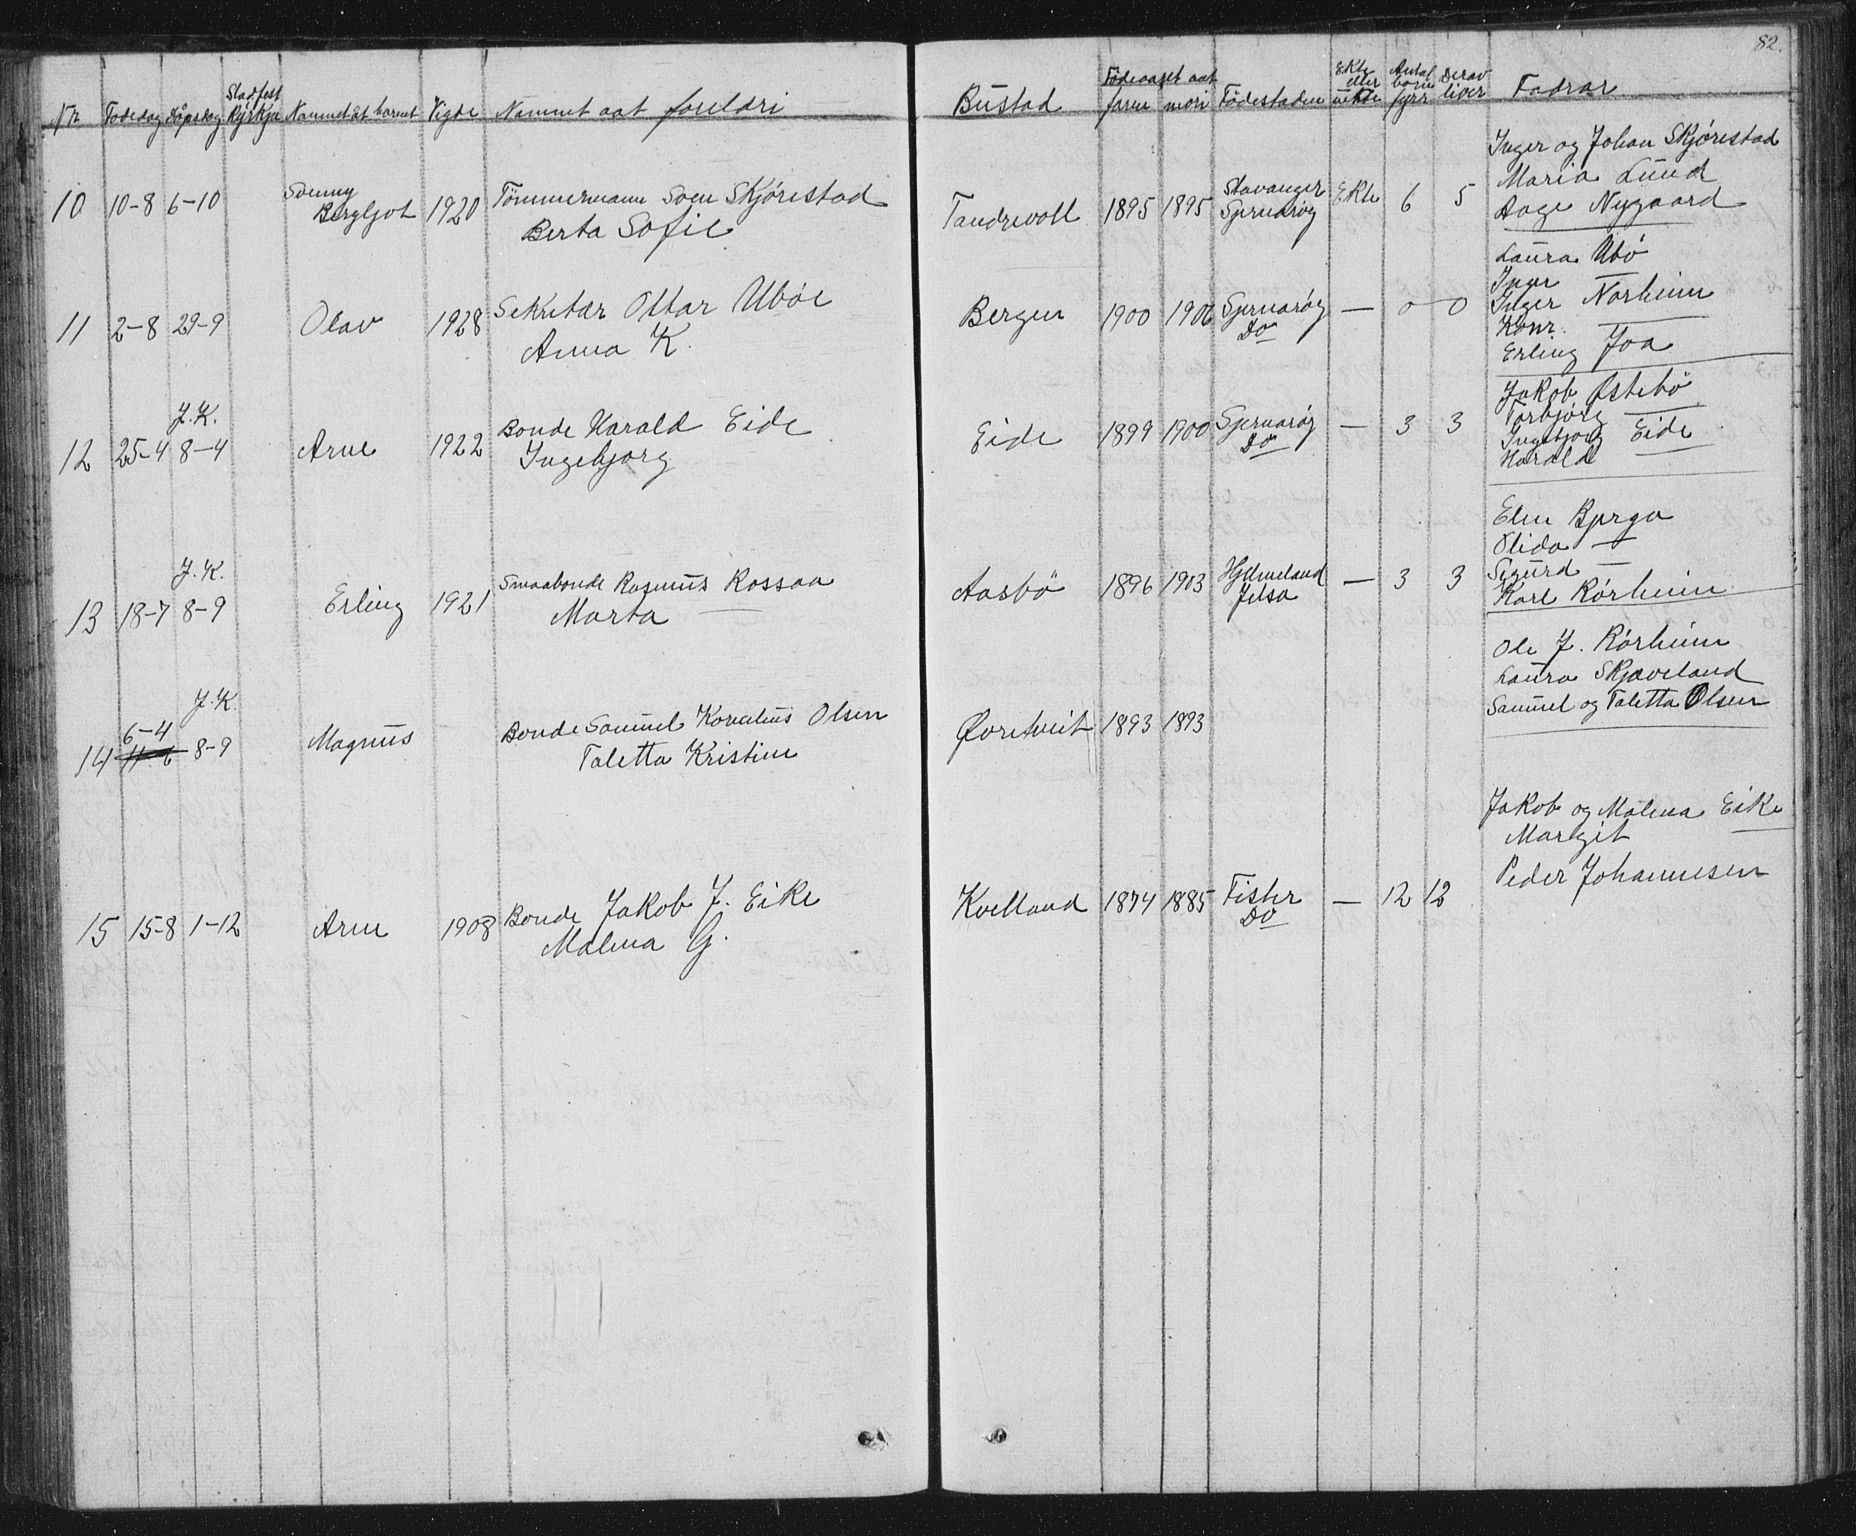 82.
Nr. Fødedag Dåpsdag Stadfest Kyrkja Namnet åt barnet Vigde Namnet aat foreldri Bustad Fødeaaret aat faren mori Fødestaden Ekte eller uekte Antal born fyrr Derav liver Fadrar
10 10-8 6-10 Svenny Bergljot 1920 Tömmermann Sven Skjørestad
Berta Sofie
Tandrevoll 1895 1895 Stavanger Sjernarøy Ekte 6 5
Inger og Johan Skjørestad
Maria Lund
Aage Nygaard
11 2-8 29-9 Olav 1928 Sekretær Ottar Ubøe
Anna K.
Bergen 1900 1906 Sjernarøy Do — 0 0
Laura Ubø
Inger —
Inger Norheim
Konr. —
Erling Joa
J.K.
12 25-4 8-4 Arne 1922 Bonde Harald Eide
Ingebjorg
Eide 1899 1900 Sjernarøy Do — 3 3
Jakob Østebö
Torbjørg —
Ingebjorg Eide
Harald —
J.K.
13 18-7 8-9 Erling 1921 Smaabonde Rasmus Rossaa
Marta —
Aasbö 1896 1903 Hjelmeland Jelsa — 3 3
Elen Bjerga
Olida —
Sigurd —
Karl Rørheim
J.K.
6-4
14 8-9 Magnus Bonde Samuel Kornelius Olsen
Taletta Kristine
Øvretveit 1893 1893
Ole J. Rørheim
Laura Skjaveland
Samuel og Taletta Olsen
15 15-8 1-12 Arne 1908 Bonde Jakob J. Eike
Malena G.
Kvelland 1874 1885 Fister Do — 12 12
Jakob og Malena Eike
Margit —
Peder Johannesen